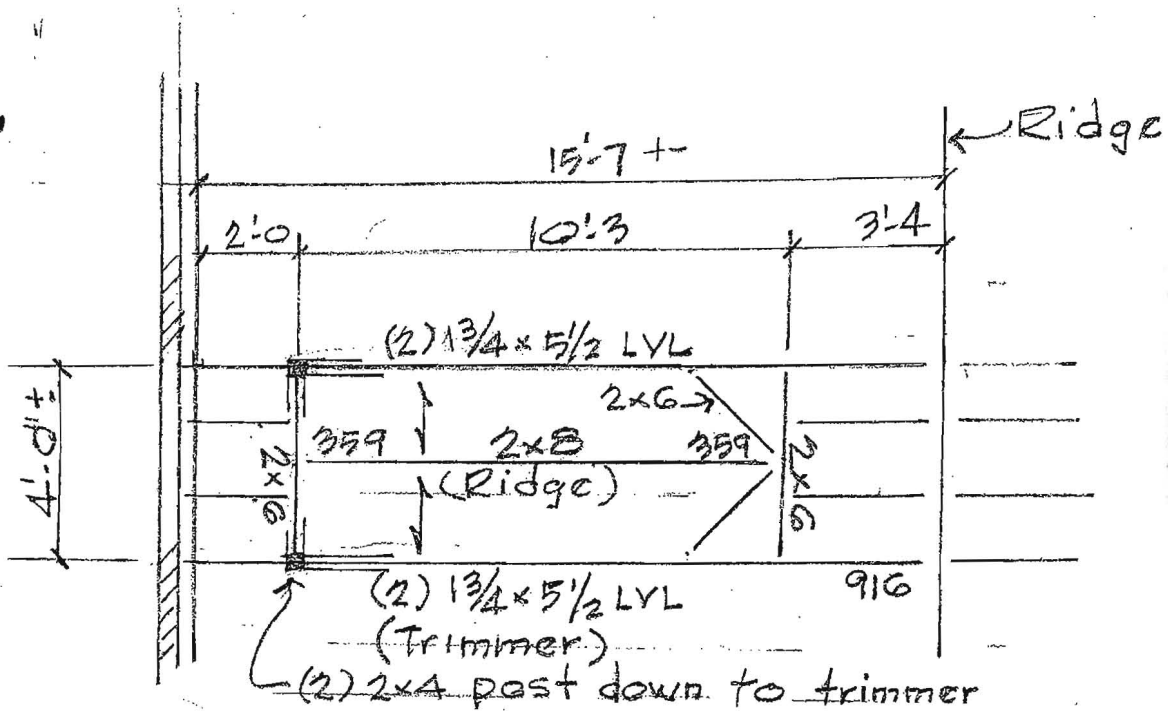 Ridge
15'-7 +-
2'-0
10'-3
3'-4
(2) 1 3/4 x 5 1/2 LVL
2x6
4'-0" ±
2x6
359
2x8
359
2x6
(Ridge)
(2) 1 3/4 x 5 1/2 LVL
916
(Trimmer)
(2) 2x4 post down to trimmer